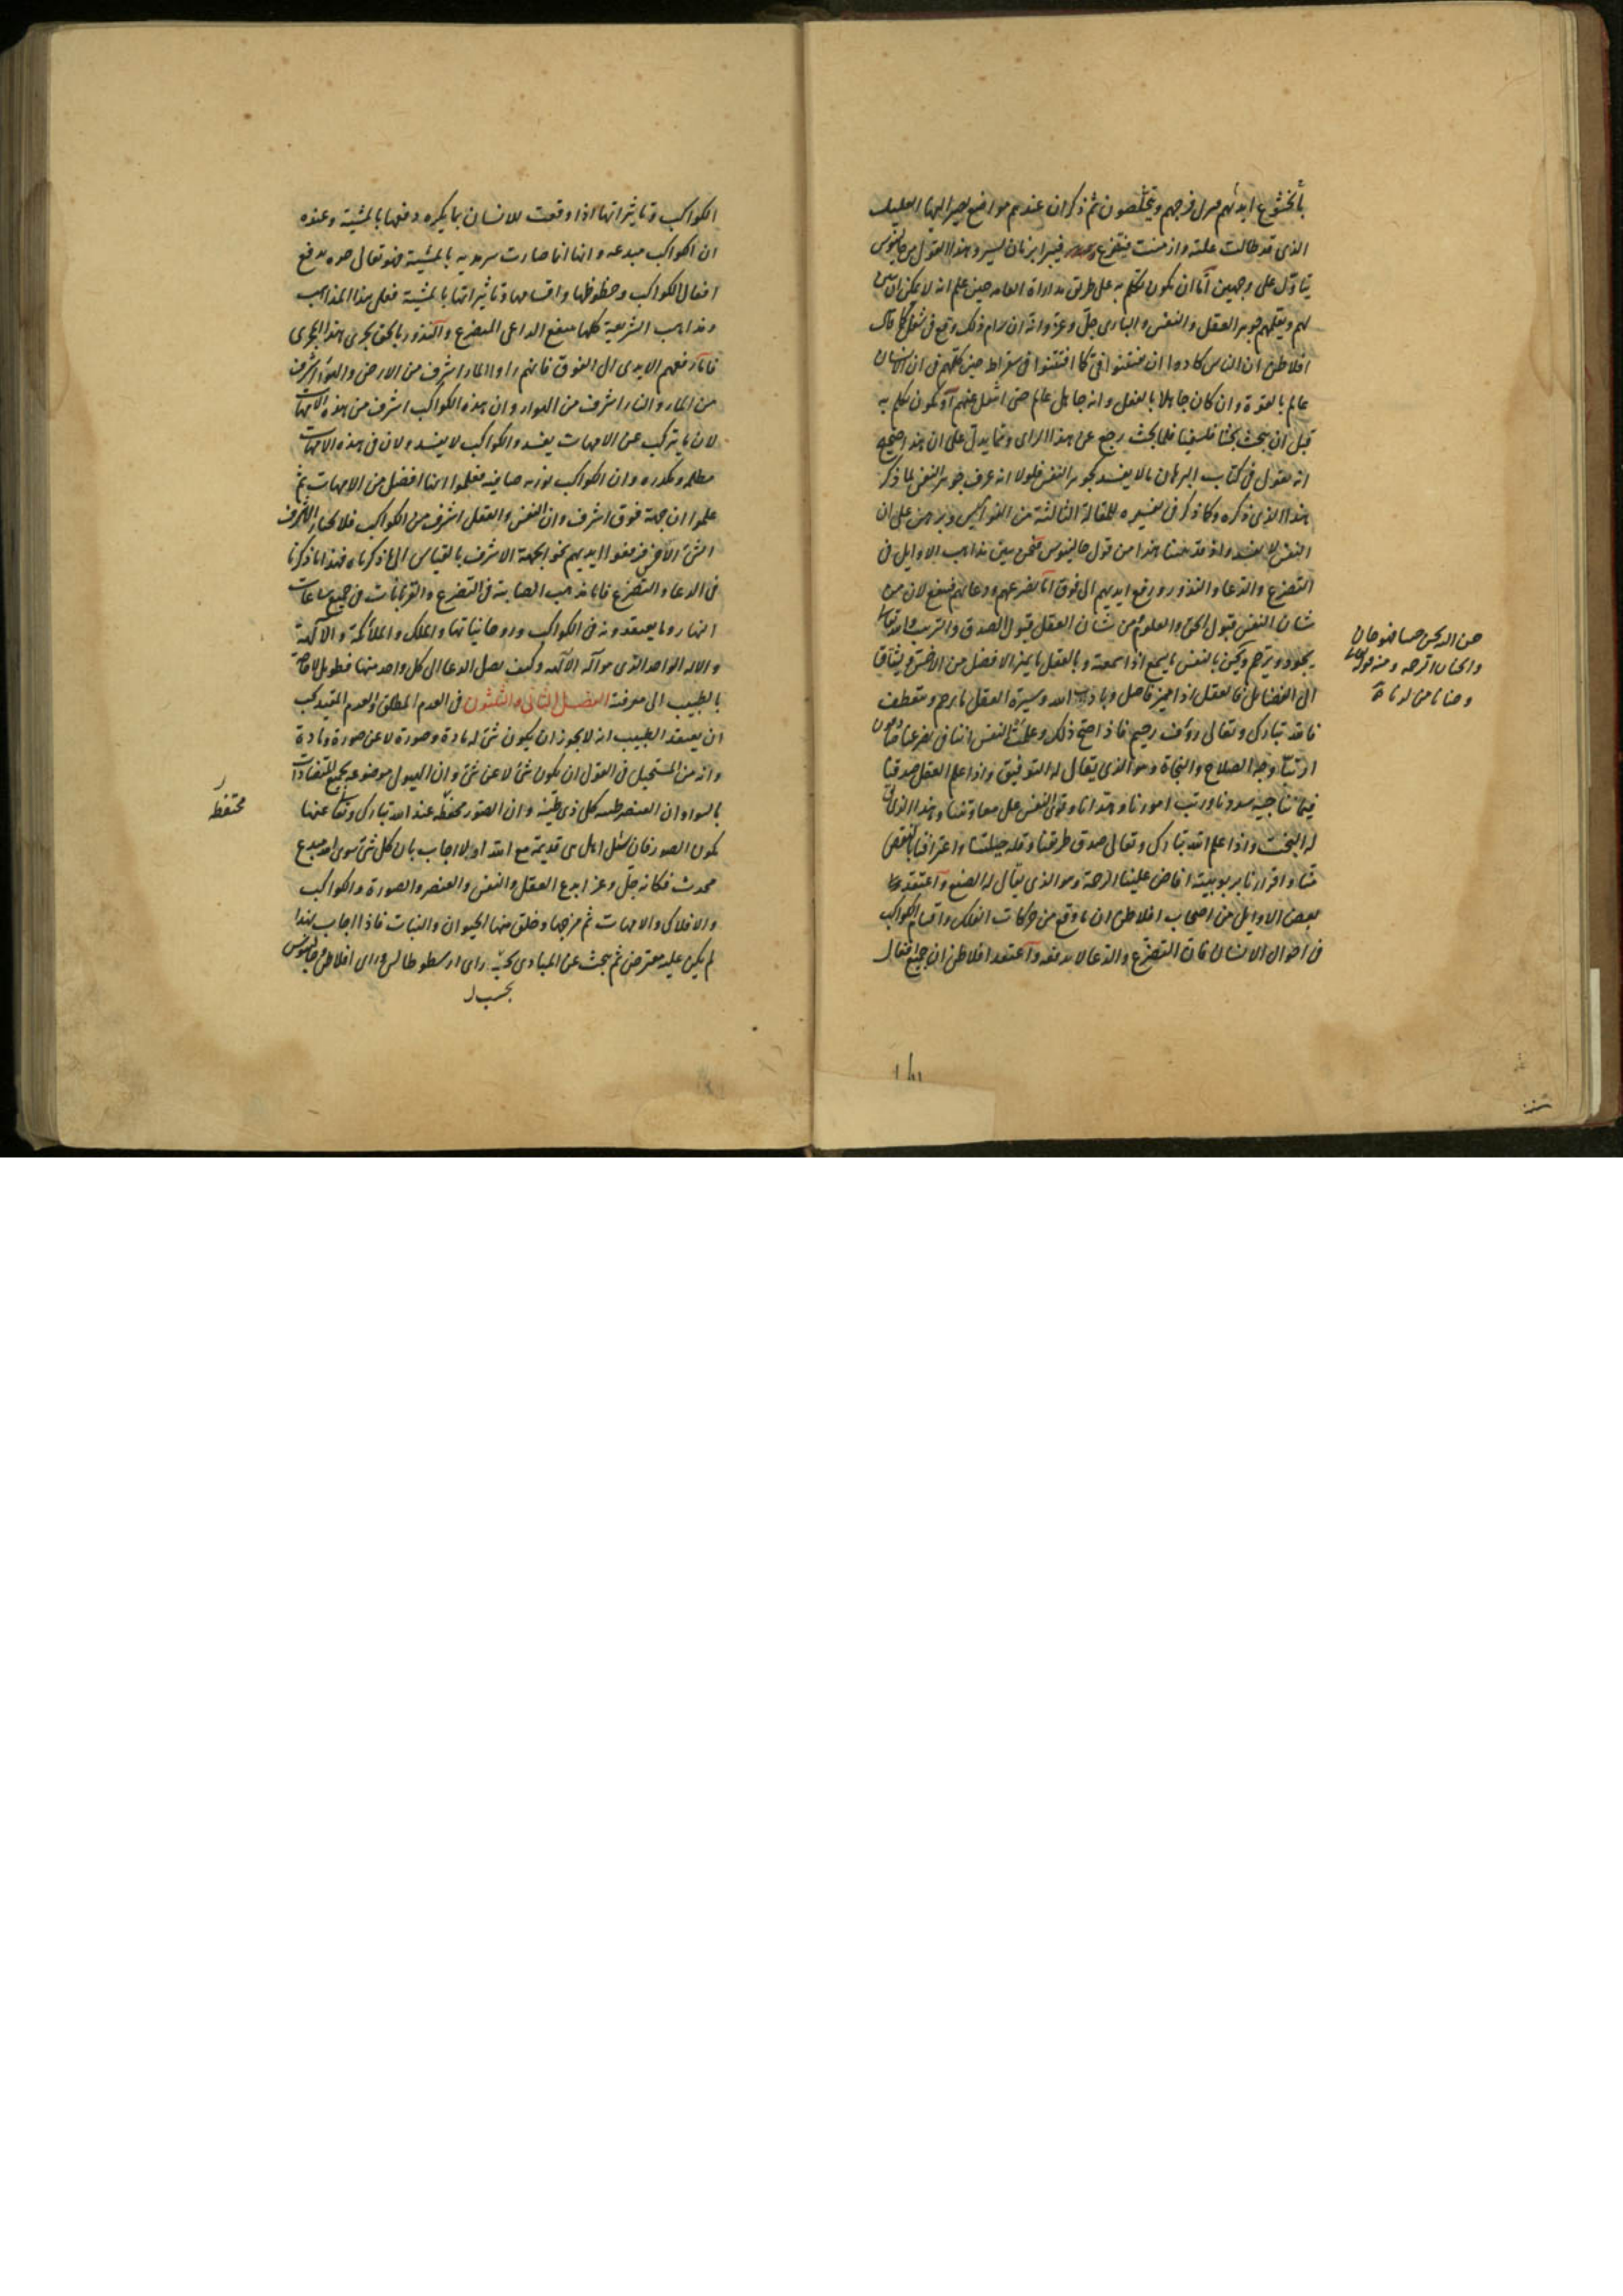 بالخشوع ثم ذكر ان عندهم مواضع يصير اليها العليل
الذى قد طالت علته وازمنت فيتضرع فيبرا بزمان يسير وهذا القول من جالينوس
يتاول على وجهين اما ان يكون تكلم به على طريق مداراة العامه حين علم انه لا يمكن ان
لهم ويعلمهم جوهر العقل والنفس والبارى جل وعز وانه ان رام ذلك وقع فى شغل كما قال
افلاطن ان الناس كادوا ان يفتتنوا فى كما افتتنوا فى سقراط حين كلمهم فى ان الانسان
عالم بالقوة وان كان جاهلا بالفعل وانه جاهل عالم حتى او يكون تكلم به
قبل ان يبحث بحثا فلسفيا فلما بحث رجع عن هذا الراى ومما يدل على ان هذا صحيح
انه يقول فى كتاب البرهان فلولا انه عرف جوهر النفس لما ذكر
هذا الذى ذكره وكما ذكر فى تفسيره للمقالة الثالثة من النواميس وبرهن على ان
النفس لا تفسد واذ قد هذا من قول جالينوس فنحن نبين مذاهب الاوايل فى
التضرع والدعا والنذور ورفع ايديهم الى فوق اما تضرعهم ودعاوهم فينفع لان من
شان النفس قبول الحق والعلوم ومن شان العقل قبول الصدق والله تعالى
يجود ويترحم ويحن بالنفس ما يسمع اذا سمعته وبالعقل ما يميز الافضل من الاخس ويشتاق
الى الفضايل فالعقل اذا ميز فاصل الله وسيرة العقل
فالله تبارك وتعالى روف رحيم فاذا صح ذلك وعلمت النفس اننا فى تضرعنا صادقون
ارتنا وجه الصلاح والنجاة وهو الذى يقال له التوفيق واذا علم العقل صدقنا
فيما نناجيه ورتب امورنا وقوى النفس على معاونتنا وهذا الذى يقال
له البخت واذا علم الله تبارك وتعالى صدق طريقنا وقلة حيلتنا واعترافنا بالنقص
منا واقرارنا بربوبيته افاض علينا الرحمة وهو الذى يقال له الصنع واعتقد
بعض الاوايل من اصحاب افلاطن ان ما وقع من حركات الفلك واقسام الكواكب
فى احوال الانسان فان التضرع والدعا لا يدفعه واعتقد افلاطن ان جميع افعال
والحنان الرحمة ومنه قوله تعالى
وحنانا من لدنا
الكواكب وتاثيراتها اذا وقعت للانسان بما يكره دفعها بالمشية وعنده
ان الكواكب مبدعه وانها انما صارت سرمديه بالمشية فهو تعالى يدفع
افعال الكواكب وحظوظها واقسامها وتاثيراتها بالمشية فعلى هذا المذاهب
ومذاهب الشريعة كلها ينفع الداعى المتضرع والنذور بالحق يجرى هذا المجرى
فاما رفعهم الايدى الى الفوق فانهم راوا الماء اشرف من الارض والهواء اشرف
من الماء والنار اشرف من الهواء وان هذه الكواكب اشرف من هذه الامهات
لان ما يتركب عن الامهات يفسد والكواكب لا يفسد ولان فى هذه الامهات
مظلم ومكدره وان الكواكب نوريه صافية فعلموا انها افضل من الامهات ثم
علموا ان جهة فوق اشرف وان النفس والعقل اشرف من الكواكب
الشى الاخس فرفعوا ايديهم نحو الجهة الاشرف بالقياس الى ما ذكرناه فهذا ما ذكرنا
فى الدعا والتضرع فاما مذهب الصابية فى التضرع والقربانات فى جميع ساعات
النهار وما يعتقدونه فى الكواكب وروحانياتها والملك والملائكة والالهة
والاله الواحد الذى هو اله الالهه وكيف يصل الدعا الى كل واحد منها فطويل لا حاجة
بالطبيب الى معرفته الفصل الثانى والثلثون فى العدم المطلق والعدم المقيد يجب
ان يعتقد الطبيب انه لا يجوز ان يكون شى له مادة وصورة لا عن صورة ومادة
وانه من المستحيل فى العقل ان يكون شى لا عن شى وان الهيولى موضوعه لجميع المتضادات
بالسواء وان العنصر كل ذى طينة وان الصور محتفظه عند الله تبارك وتعالى عنها
يكون الصور فان سئل اهل هى قديمة مع الله اولا اجاب بان كل شى سوى الله مبدع
محدث فكانه جل وعز ابدع العقل والنفس والعنصر والصورة والكواكب
والافلاك والامهات ثم مزجها وخلق منها الحيوان والنبات فاذا اجاب بهذا
لم يكن عليه معترض ثم يبحث عن المبادى راى ارسطوطاليس وراى افلاطن وجالينوس
محتفظه
بحسب